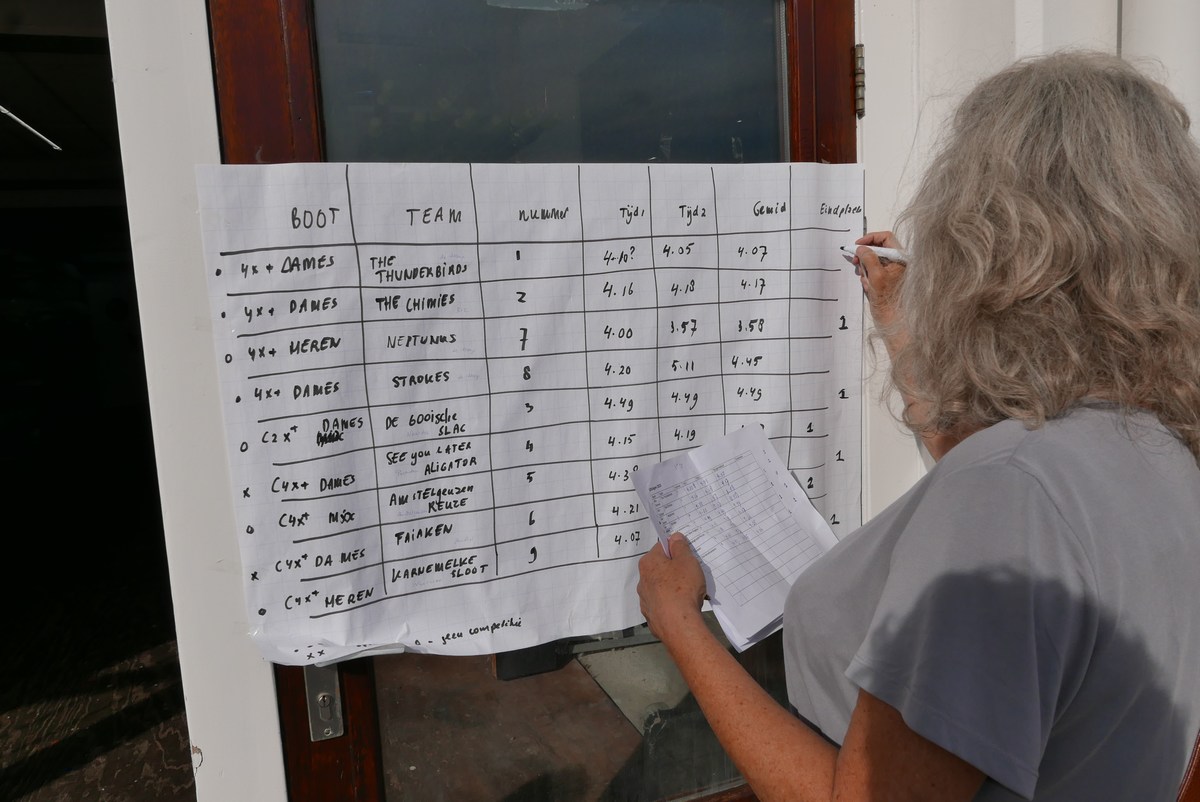 BOOT TEAM nummer Tijd1 Tijd2 Gemid Eindplaats
• 4x+ DAMES THE THUNDERBIRDS 1 4.10? 4.05 4.07
• 4x+ DAMES THE CHIMIES 2 4.16 4.18 4.17
o 4x+ HEREN NEPTUNUS 7 4.00 3.57 3.58 1
• 4x+ DAMES STROKES 8 4.20 5.11 4.45
o C2x+ DAMES DE GOOISCHE SLAG 3 4.49 4.49 4.49 1
x C4x+ DAMES SEE YOU LATER ALIGATOR 4 4.15 4.19 1
o C4x+ MIX AMSTELGEUZEN KEUZE 5 1
x C4x+ DAMES FAIAKEN 6 4.21 2
o C4x+ HEREN KARNEMELKE SLOOT 9 4.07 1
x x o - geen competitie